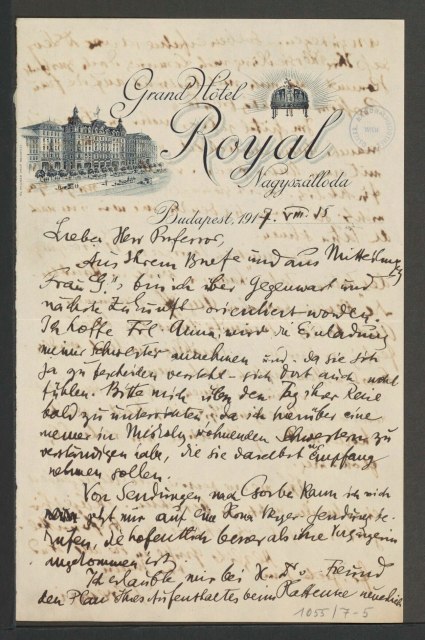 Grand Hôtel
Royal
Nagyszálloda
Budapest, 1917. VIII. 15
Lieber Herr Professor,
Aus Ihrem Briefe und aus Mitteilung
Frau G.'s bin ich über Gegenwart und
nächste Zukunft orientiert worden.
Ich hoffe Frl. Anna wird die Einladung
meiner Schwester annehmen und, da sie sich
ja zu bescheiden versteht - sich dort auch wohl
fühlen. Bitte mich über den Tag ihrer Reise
bald zu unterrichten, da ich hierüber eine
meiner in Miskolcz wohnenden Schwestern zu
verständigen habe, die sie daselbst in Empfang
nehmen sollen.
Von Sendungen nach Csorbe kann ich mich
jetzt nur auf eine Kona Sendung be-
rufen, die hoffentlich besser als ihre Vorgängerin
angekommen ist.
Ich erlaubte mir bei H. Dr. Freund
den Plan Ihres Aufenthaltes beim neuerlich
1055/7-5